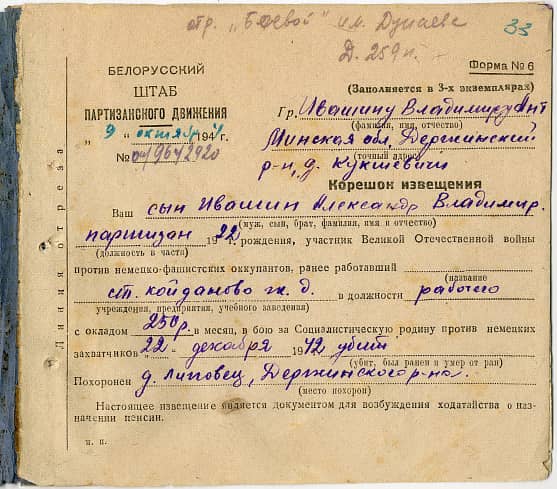 отр. „Боевой" им. Дунаева
33
Д. 259 п.
БЕЛОРУССКИЙ
ШТАБ
ПАРТИЗАНСКОГО ДВИЖЕНИЯ
„9" октября 1944 г.
№ 04/9642920
Форма № 6
(Заполняется в 3-х экземплярах)
Гр. Ивашину Владимиру Ант
(фамилия, имя, отчество)
Минская обл, Держинский
(точный адрес)
р-н, д. Кукшевичи
Корешок извещения
Ваш сын Ивашин Александр Владимир.
(муж, сын, брат, фамилия, имя и отчество)
партизан 1922 г. рождения, участник Великой Отечественной войны
(должность в части)
против немецко-фашистских оккупантов, ранее работавший
(название
ст. Койданово ж. д. в должности рабочего
учреждения, предприятия, учебного заведения)
с окладом 250 р. в месяц, в бою за Социалистическую родину против немецких
захватчиков „22" декабря 1942 убит
(убит, был ранен и умер от ран)
Похоронен д. Липовец, Держинского р-на.
(место похорон)
Настоящее извещение является документом для возбуждения ходатайства о наз-
начении пенсии.
м. п.
Линия отреза